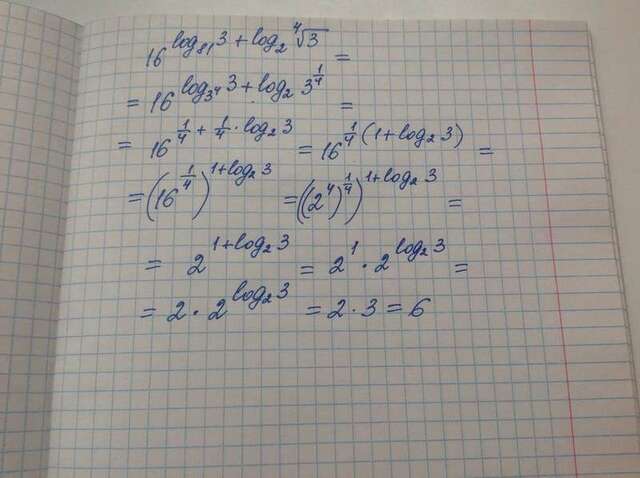 16^(log₈₁3 + log₂ ∜3) =
= 16^(log_(3⁴)3 + log₂3^(1/4)) =
= 16^(1/4 + 1/4 · log₂3) = 16^(1/4 (1 + log₂3)) =
= (16^(1/4))^(1 + log₂3) = ((2⁴)^(1/4))^(1 + log₂3) =
= 2^(1 + log₂3) = 2¹ · 2^(log₂3) =
= 2 · 2^(log₂3) = 2 · 3 = 6